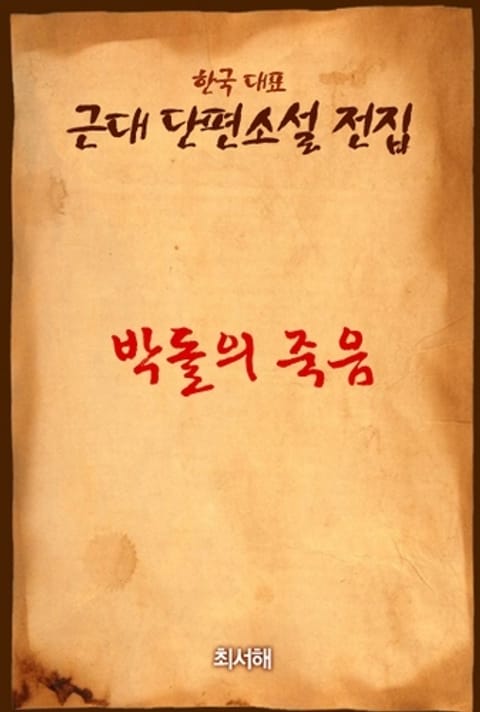 한국 대표
근대 단편소설 전집
박돌의 죽음
최서해